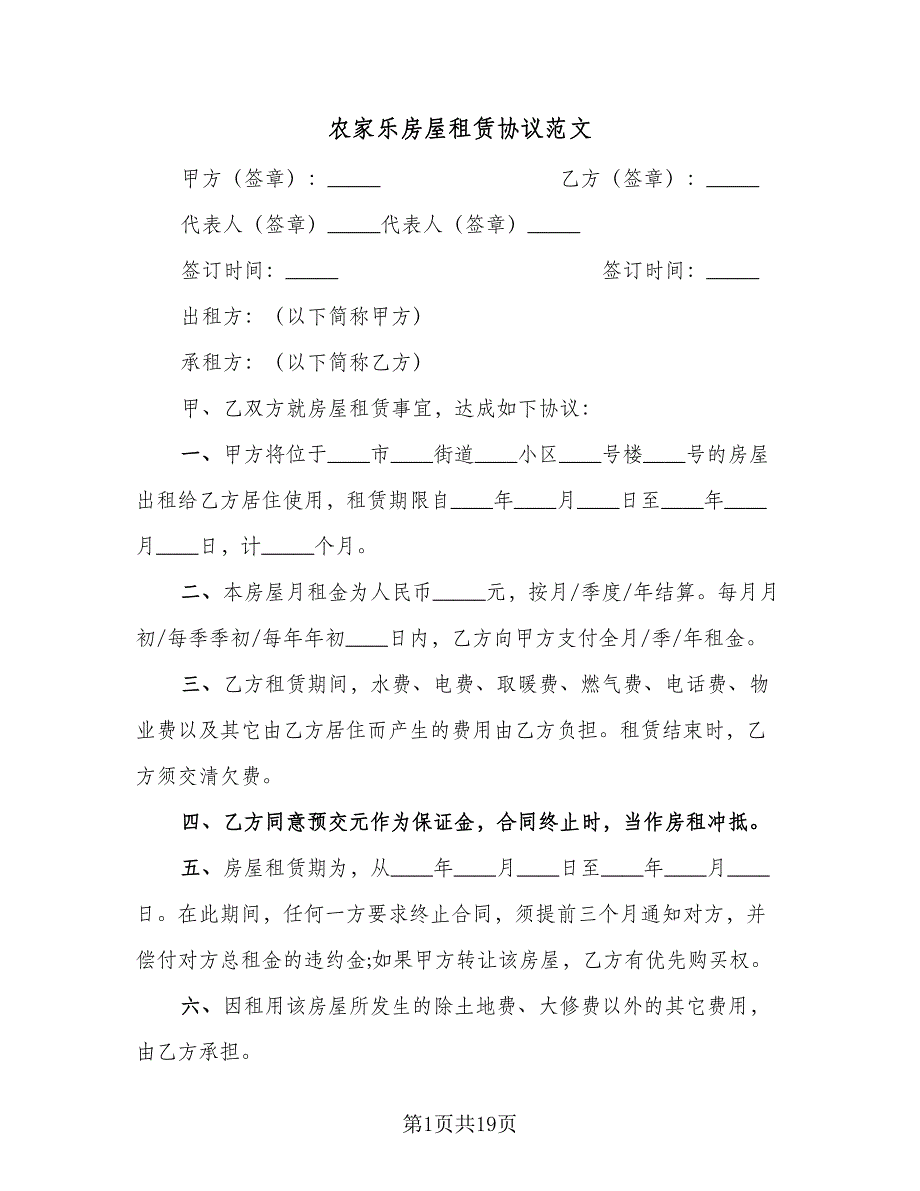 农家乐房屋租赁协议范文
甲方（签章）：_____ 乙方（签章）：_____
代表人（签章）_____代表人（签章）_____
签订时间：_____ 签订时间：_____
出租方：（以下简称甲方）
承租方：（以下简称乙方）
甲、乙双方就房屋租赁事宜，达成如下协议：
一、甲方将位于____市____街道____小区____号楼____号的房屋
出租给乙方居住使用，租赁期限自____年____月____日至____年____
月____日，计_____个月。
二、本房屋月租金为人民币_____元，按月/季度/年结算。每月月
初/每季季初/每年年初____日内，乙方向甲方支付全月/季/年租金。
三、乙方租赁期间，水费、电费、取暖费、燃气费、电话费、物
业费以及其它由乙方居住而产生的费用由乙方负担。租赁结束时，乙
方须交清欠费。
四、乙方同意预交元作为保证金，合同终止时，当作房租冲抵。
五、房屋租赁期为，从____年____月____日至____年____月____
日。在此期间，任何一方要求终止合同，须提前三个月通知对方，并
偿付对方总租金的违约金;如果甲方转让该房屋，乙方有优先购买权。
六、因租用该房屋所发生的除土地费、大修费以外的其它费用，
由乙方承担。
第1页共19页